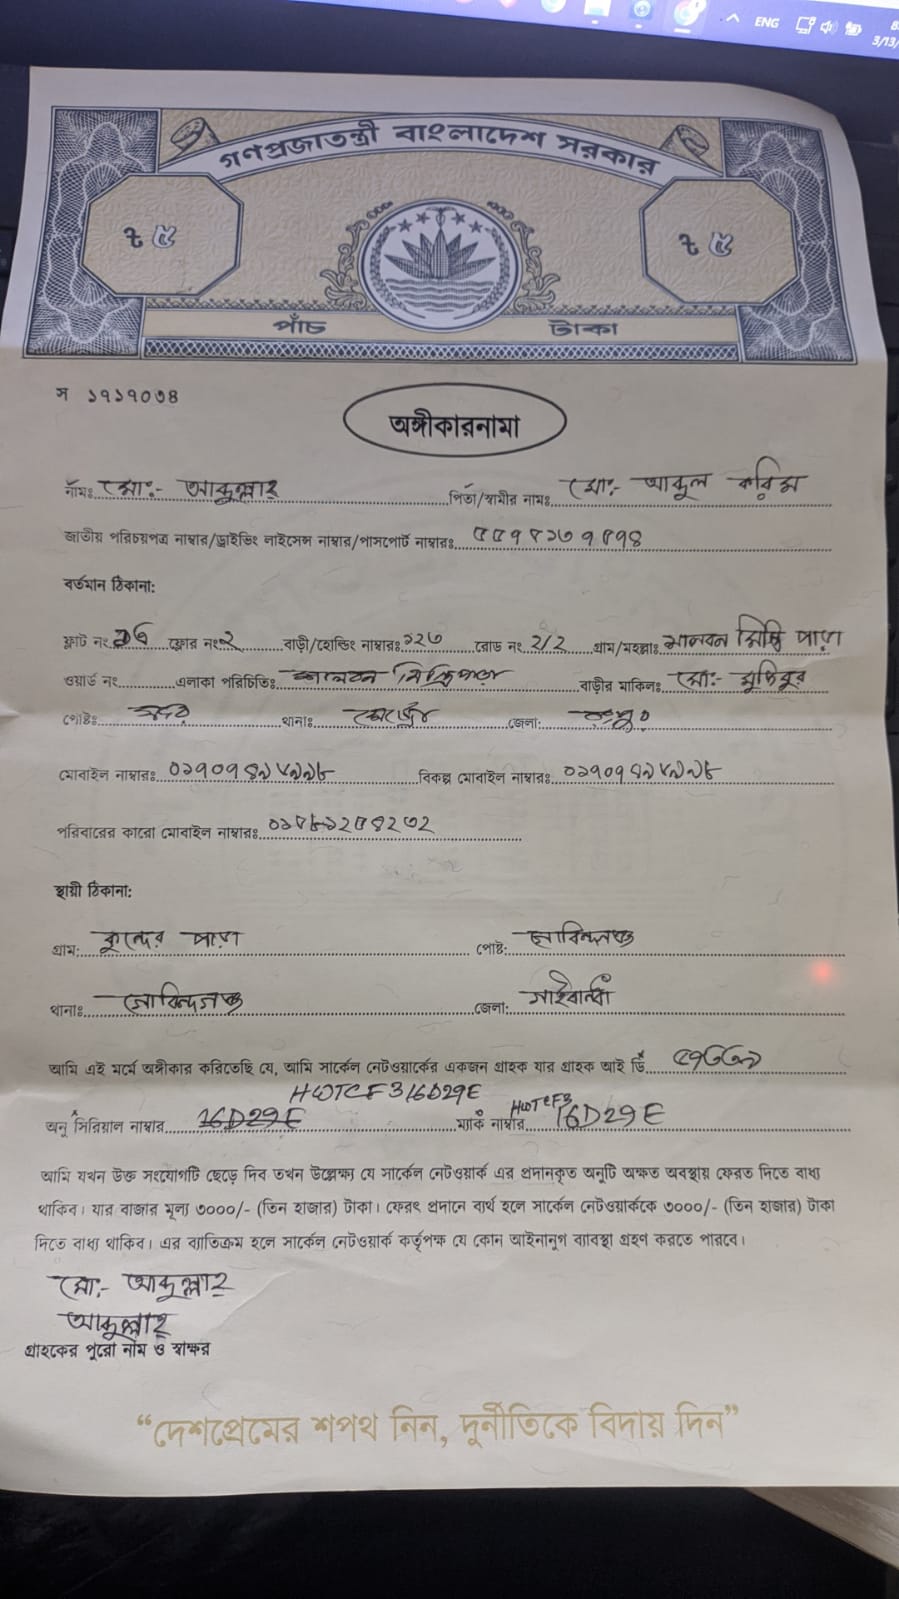 ENG
3/13/
গণপ্রজাতন্ত্রী বাংলাদেশ সরকার
৳ ৫ ৳ ৫
পাঁচ টাকা
স ১৯১৭০৩৪
অঙ্গীকারনামা
নামঃ মোঃ- আব্দুল্লাহ্ পিতা/স্বামীর নামঃ মোঃ- আব্দুল করিম
জাতীয় পরিচয়পত্র নাম্বার/ড্রাইভিং লাইসেন্স নাম্বার/পাসপোর্ট নাম্বারঃ
বর্তমান ঠিকানা:
ফ্লাট নং ফ্লোর নং ২ বাড়ী/হোল্ডিং নাম্বারঃ ১২৩ রোড নং 2/2 গ্রাম/মহল্লাঃ শালবন মিস্ত্রি পাড়া
ওয়ার্ড নং এলাকা পরিচিতিঃ শালবন মিস্ত্রিপাড়া বাড়ীর মালিকঃ মোঃ-
পোষ্টঃ সদর থানাঃ জেলা: রংপুর
মোবাইল নাম্বারঃ বিকল্প মোবাইল নাম্বারঃ
পরিবারের কারো মোবাইল নাম্বারঃ
স্থায়ী ঠিকানা:
গ্রাম: পাড়া পোষ্ট: গোবিন্দগঞ্জ
থানাঃ গোবিন্দগঞ্জ জেলা: গাইবান্ধা
আমি এই মর্মে অঙ্গীকার করিতেছি যে, আমি সার্কেল নেটওয়ার্কের একজন গ্রাহক যার গ্রাহক আই ডি
HWTCF316D29E
অনু সিরিয়াল নাম্বার 16D29E ম্যাক নাম্বার HWTCF3 16D29E
আমি যখন উক্ত সংযোগটি ছেড়ে দিব তখন উল্লেক্ষ্য যে সার্কেল নেটওয়ার্ক এর প্রদানকৃত অনুটি অক্ষত অবস্থায় ফেরত দিতে বাধ্য
থাকিব। যার বাজার মূল্য ৩০০০/- (তিন হাজার) টাকা। ফেরৎ প্রদানে ব্যর্থ হলে সার্কেল নেটওয়ার্ককে ৩০০০/- (তিন হাজার) টাকা
দিতে বাধ্য থাকিব। এর ব্যাতিক্রম হলে সার্কেল নেটওয়ার্ক কর্তৃপক্ষ যে কোন আইনানুগ ব্যাবস্থা গ্রহণ করতে পারবে।
মোঃ- আব্দুল্লাহ্
আব্দুল্লাহ্
গ্রাহকের পুরো নাম ও স্বাক্ষর
“দেশপ্রেমের শপথ নিন, দুর্নীতিকে বিদায় দিন”